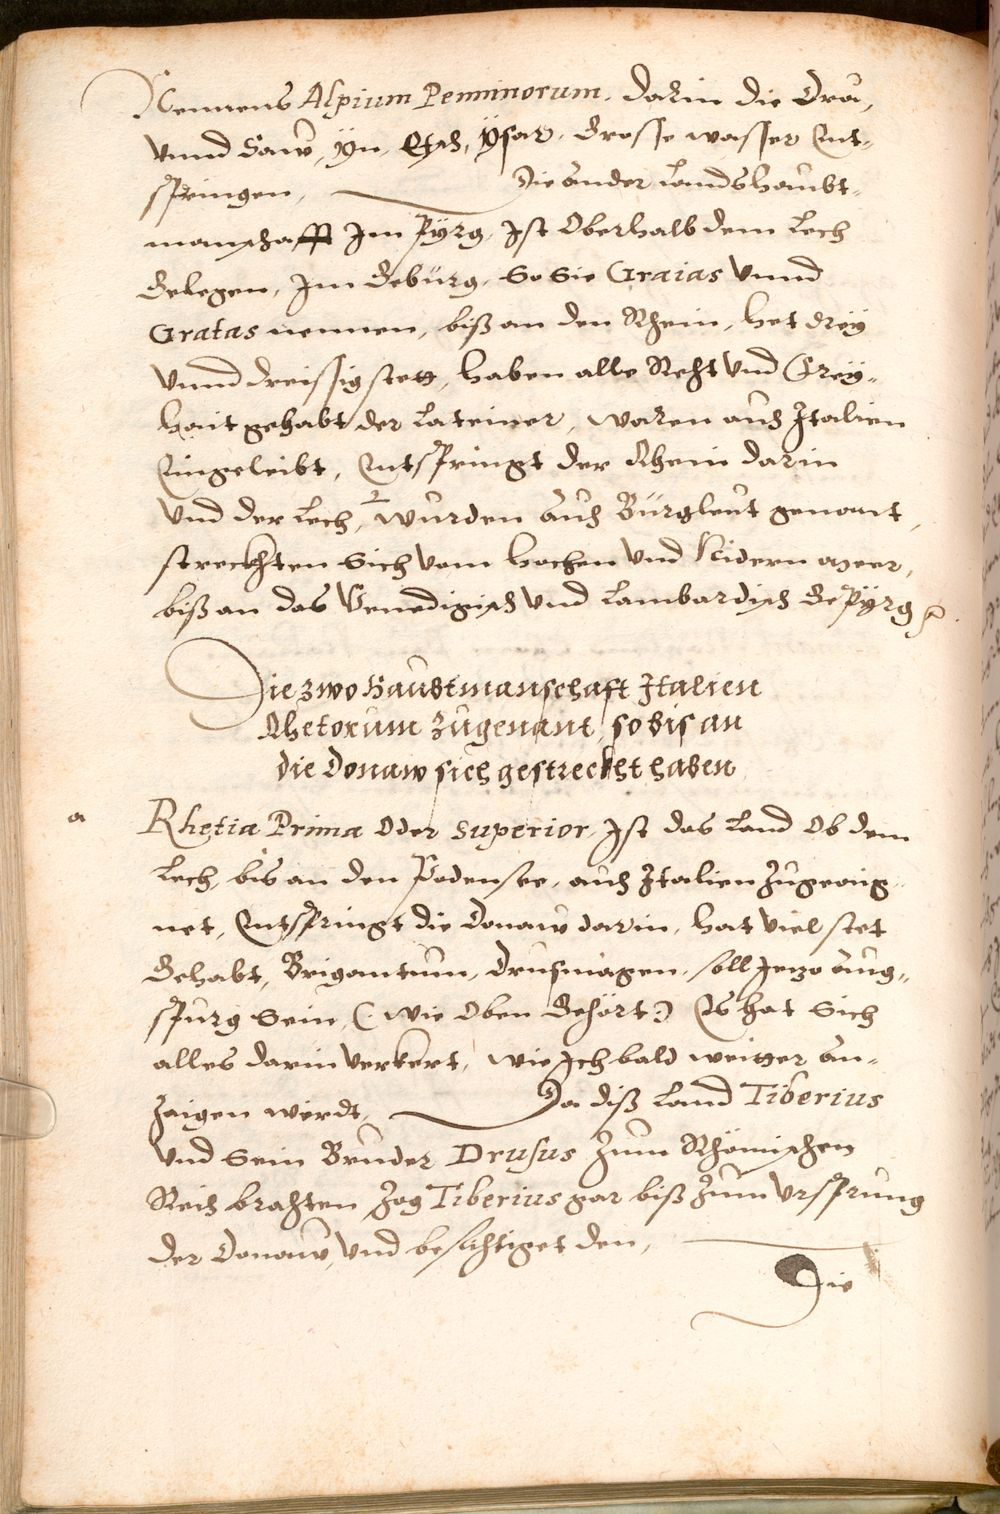 Nennens Alpium Penninorum. darin die Dra,
vnnd Saw, Yn, Etsch, Ysar, Grosse wasser Ent-
springen, Die ander Landshaubt-
manschafft Im Pyrg, Ist Oberhalb dem Lech
Gelegen, Im Gebürg, So Sie Graias Vnnd
Gratas nennen, biß an den Rhein, het drey
Vnnd dreissig stett, haben alle Recht Vnd Frey-
hait gehabt der Lateiner, waren auch Italien
Eingeleibt, Entspringt der Rhein darin
Vnd der Lech, wurden Auch Bürgleut genant,
streckhten Sich Vom hochen Vnd Nidern meer,
biß an das Venedigisch Vnd Lambardisch GePyrg
Die zwo Haubtmanschaft Italien
Rhetorum Zugenant, so bis an
die Donaw sich gestreckht haben
a Rhetia Prima Oder Superior, Ist das Land Ob dem
Lech, bis an den Podensee, auch Italien Zugeaig-
net, Entspringt die Donaw darin, hat Viel stet
Gehabt, Brigantium, Drusmagen, soll Jetzo Aug-
spurg Sein, (: wie Oben Gehört :) Es hat Sich
alles darin Verkert, wie Ich bald weitter An-
zaigen wirdt, Da diß Land Tiberius
Vnd Sein Bruder Drusus Zum Rhömischen
Reich brachten Zog Tiberius gar biß Zum Vrsprung
der Donaw, Vnd besichtiget den,
Die